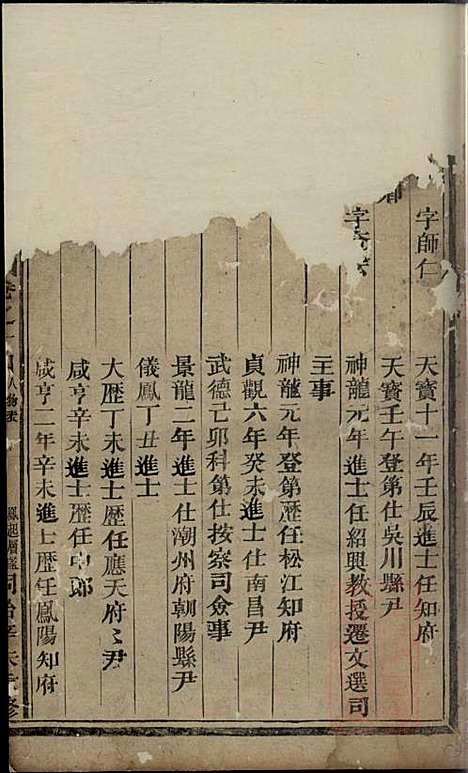 字師仁 天寶十一年壬辰進士任知府
天寶壬午登第仕吳川縣尹
字 神龍元年進士任紹興教授遷文選司
主事
神龍元年登第歷任松江知府
貞觀六年癸未進士仕南昌尹
武德己卯科第仕按察司僉事
景龍二年進士仕潮州府朝陽縣尹
儀鳳丁丑進士
大歷丁未進士歷任應天府之尹
咸亨辛未進士歷任中郎
咸亨二年辛未進士歷任鳳陽知府
卷之 人物 同治辛未 修